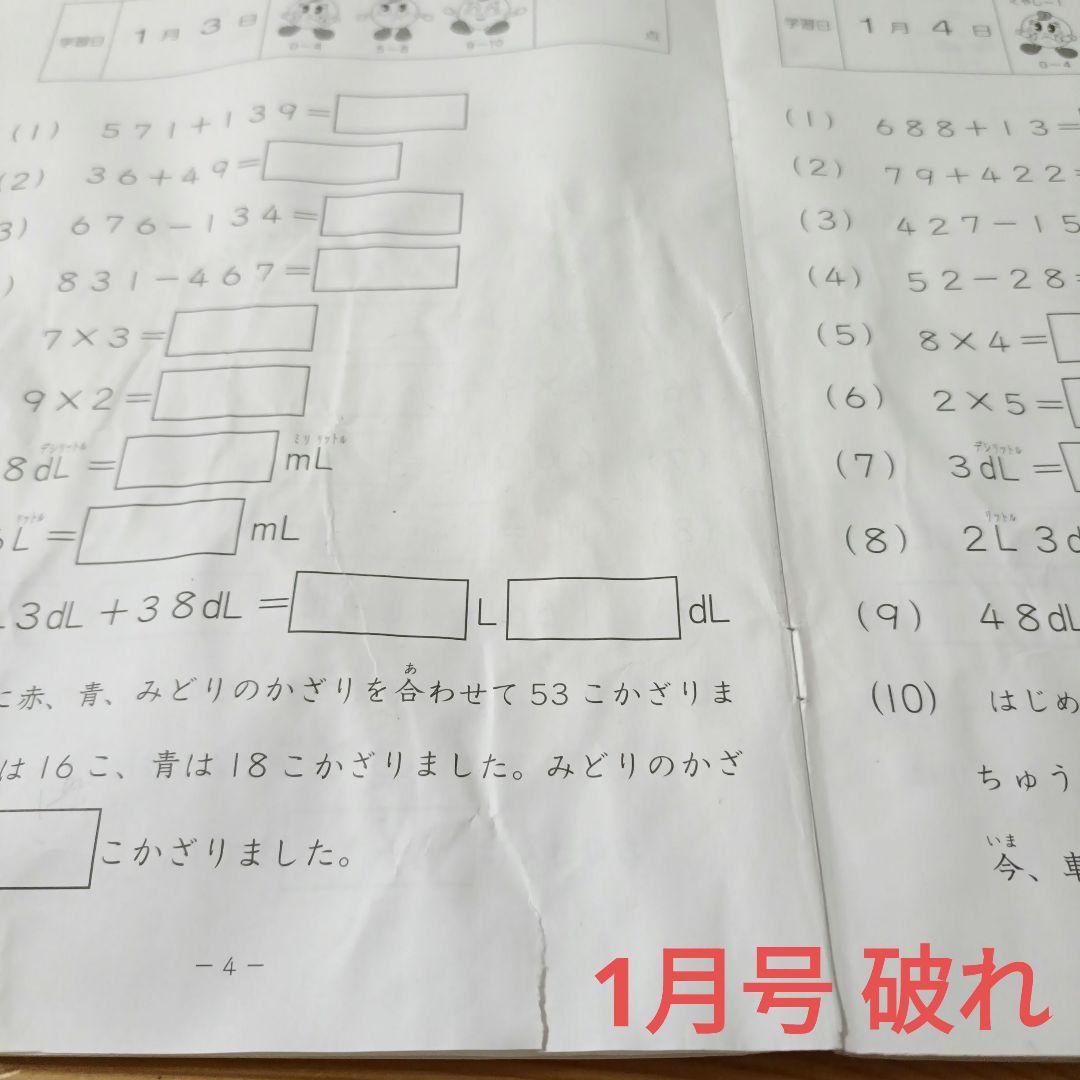 学習日 1月3日
0－4 5－8 9－10
点
(1) 571＋139＝
(2) 36＋49＝
3) 676－134＝
) 831－467＝
7×3＝
9×2＝
デシリットル ミリ リットル
8dL＝ mL
リットル
L＝ mL
3dL＋38dL＝ L dL
あ
に赤、青、みどりのかざりを合わせて53こかざりま
は16こ、青は18こかざりました。みどりのかざ
こかざりました。
－4－
学習日 1月4日
0－4
(1) 688＋13＝
(2) 79＋422＝
(3) 427－15
(4) 52－28＝
(5) 8×4＝
(6) 2×5＝
デシリットル
(7) 3dL＝
リットル
(8) 2L3d
(9) 48dL
(10) はじめ
ちゅう
いま
今、車
1月号 破れ